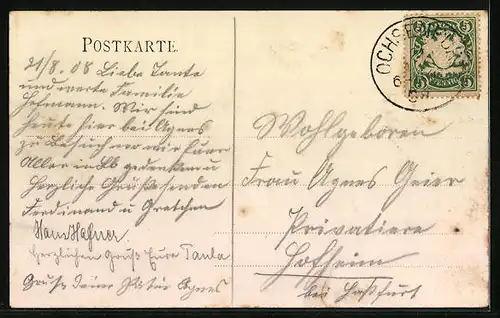 POSTKARTE.
21/8.08 Liebe Tante
und werte Familie
Hofmann. Wir sind
heute hier bei Agnes
zu Besuch wo wir Eurer
Aller in Lb gedenken u
herzliche Grüße senden
Ferdinand u Gretchen
Hans Hafner
herzlichen Gruß Eure Paula
Gruß Deine Agnes
OCHSE
5 5
Wohlgeboren
Frau Agnes Geier
Privatiere
Hofheim
bei Haßfurt